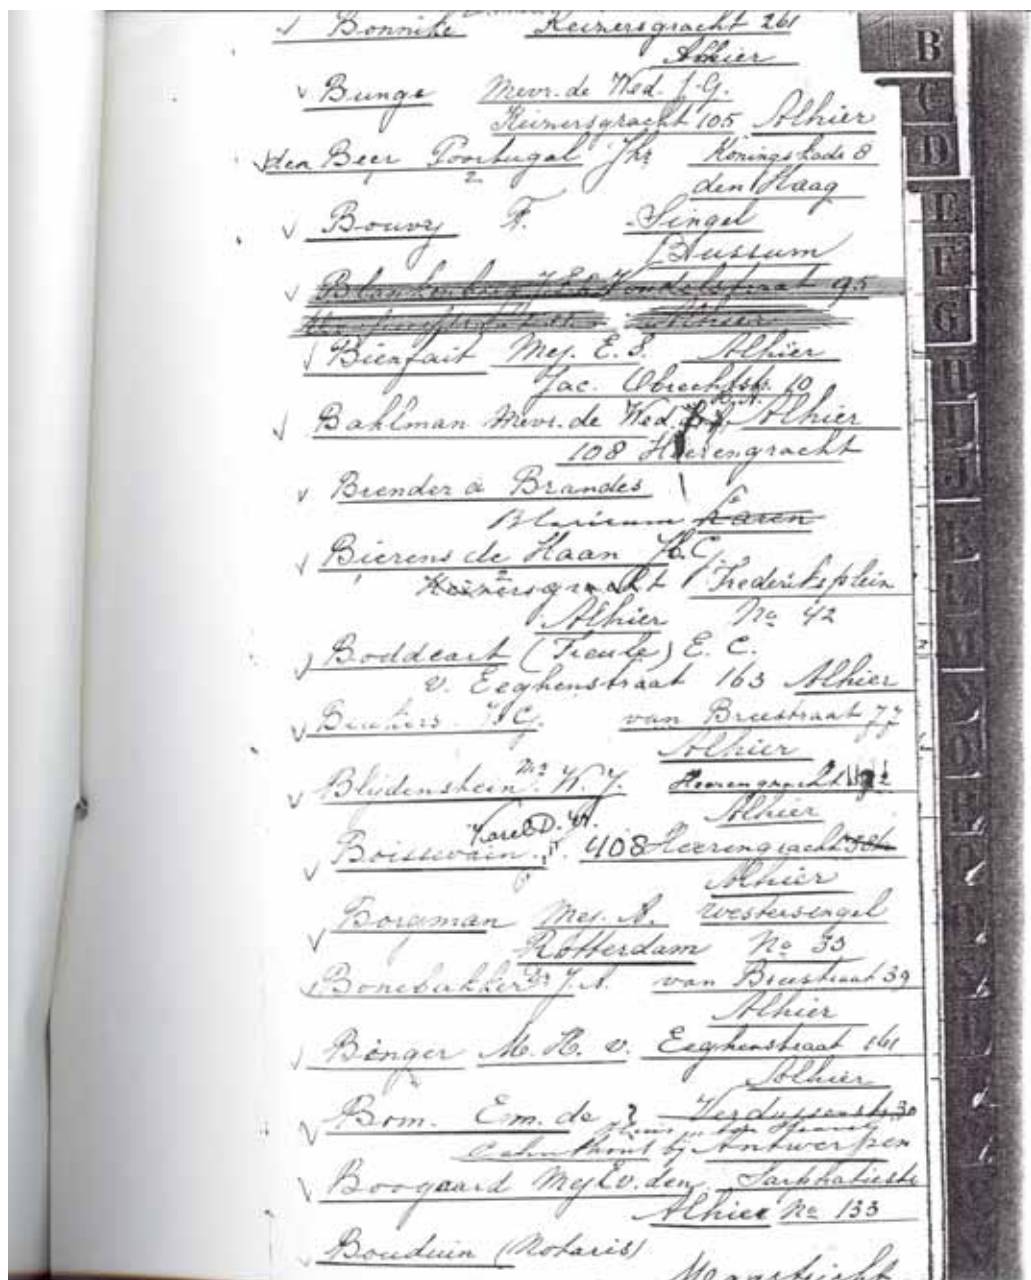 Bonnike Keizersgracht 261
Alhier
Bunge Mevr. de Wed. J. G.
Keizersgracht 105 Alhier
den Beer Poortugal Jhr Koningskade 8
2 den Haag
Bouvy F. Singel
Bussum
Blankenberg J. F. Vondelstraat 95
Alhier
Bienfait Mej. E. S. Alhier
Jac. Obrechtstr. 10
Bahlman Mevr. de Wed. Alhier
108 Heerengracht
Brender à Brandes
Blaricum Laren
Bierens de Haan H. C.
Keizersgracht Frederiksplein
Alhier No 42
Boddaert (Freule) E. C.
v. Eeghenstraat 163 Alhier
J. G. van Breestraat 77
Alhier
Blijdenstein Mr W. J. Heerengracht
Alhier
Karel D. W.
Boissevain 408 Heerengracht
Alhier
Borgman Mej. A. Westersingel
Rotterdam No 33
Bonebakker Dr J. A. van Breestraat 39
Alhier
Bonger M. H. v. Eeghenstraat 161
Alhier
Bom. Em. de Verdussenstr. 30
Calmpthout bij Antwerpen
Boogaard Mej E v. den Sarphatistr
Alhier No 133
Bouduin (Notaris)
Maastricht
B
C
D
E
F
G
H
I
J
K
L
M
N
O
P